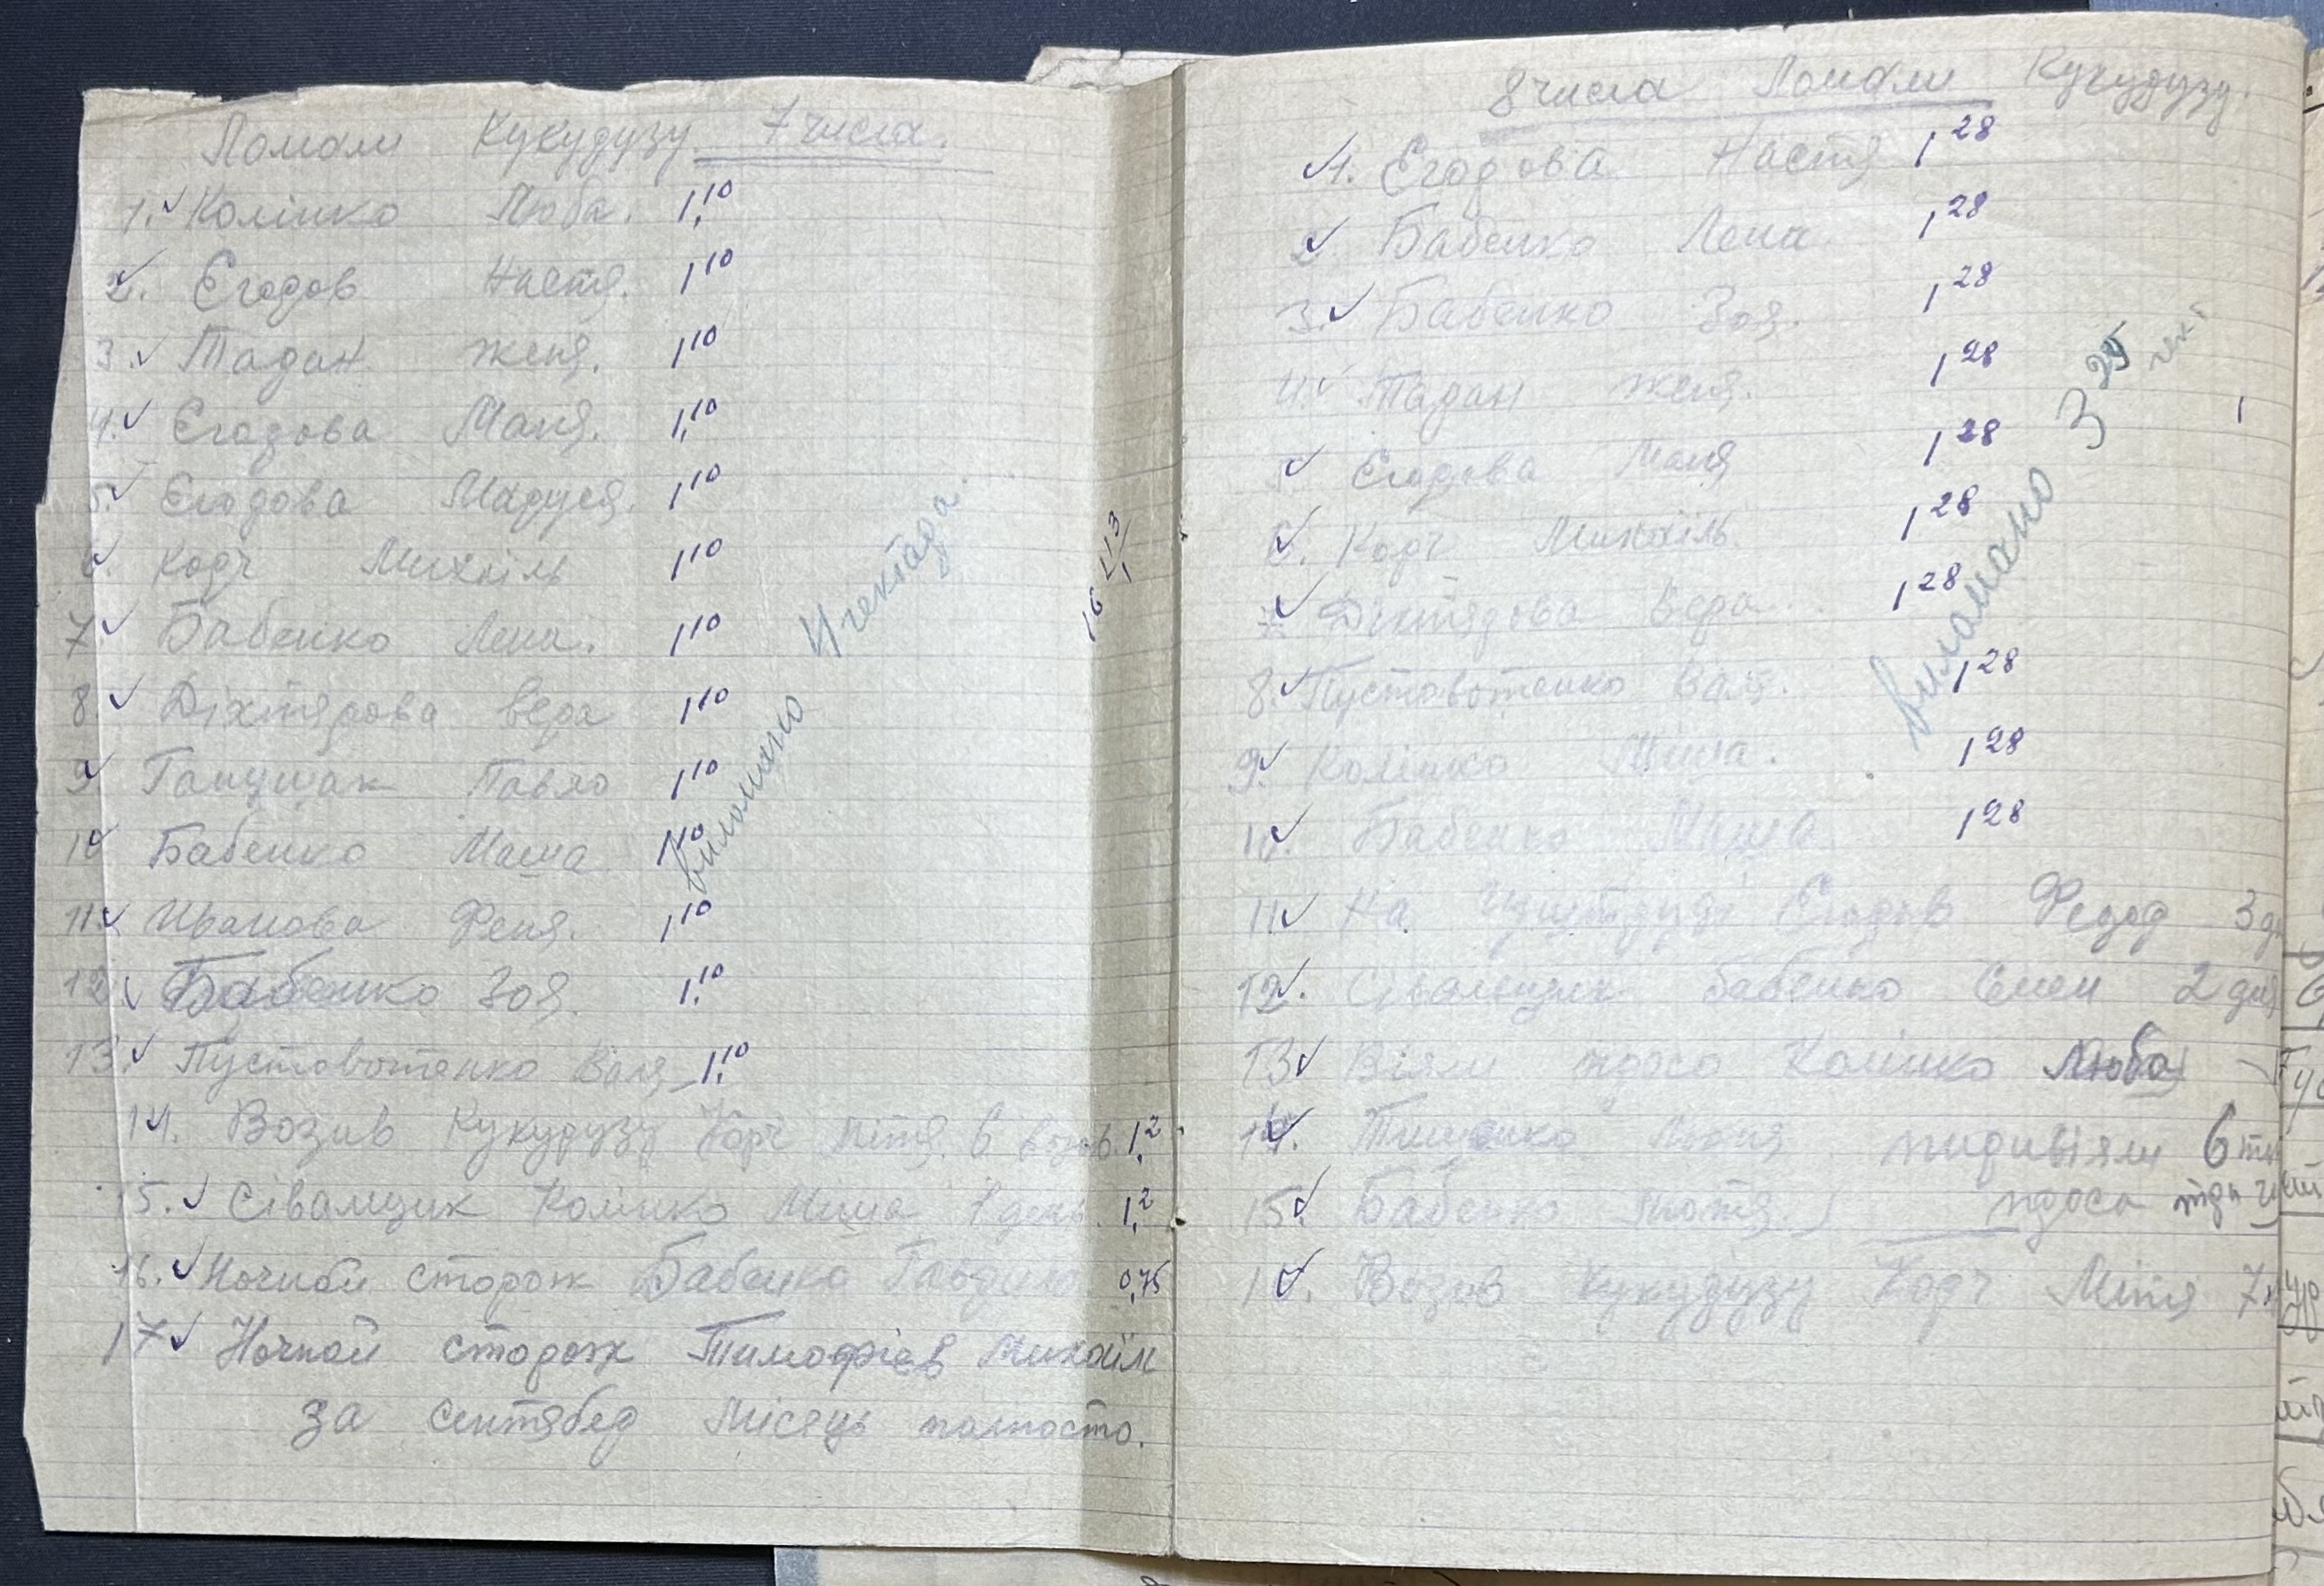 Ломали Кукурузу 7 числа.
1. Колінко Люба. 1,10
2. Єгоров Настя. 1,10
3. Таран женя. 1,10
4. Єгорова Маня. 1,10
5. Єгорова Маруся. 1,10
6. Корч Михаіль 1,10
7. Бабенко Лена. 1,10
8. Діхтярова вера 1,10
9. Павло 1,10
10 Бабенко Маша 1,10
11. Иванова Феня. 1,10
12. Бабенко Зоя. 1,10
13. Пустовотенко Валя 1,10
виломано 4 гектара.
14. Возив Кукурузу Корч Мітя. 6 возов. 1,2
15. Сівалщик Колінко Міша 1 день. 1,2
16. Ночной сторож Бабенко 0,75
17 Ночной сторож Тимофієв Михаіл
за сентябер Місяць
16 413
8 числа Ломали Кукурузу.
1. Єгорова Настя 1,28
2. Бабенко Лена 1,28
3. Бабенко Зоя. 1,28
4. Таран женя. 1,28
5 Єгорова Маня 1,28
6. Корч Михаіль. 1,28
7. Діхтярова Вера 1,28
8. Пустовотенко Валя. 1,28
9. Колінко Міша. 1,28
10. Бабенко Міша 1,28
виломано 3 25 гект
11 На Єгоров Федор 3
12. Сівальщик Бабенко Семен 2 дня
13 Віяли проса Колінко Люба
14. 6
15. Бабенко проса
16. Возив Кукурузу Корч Мітя 7